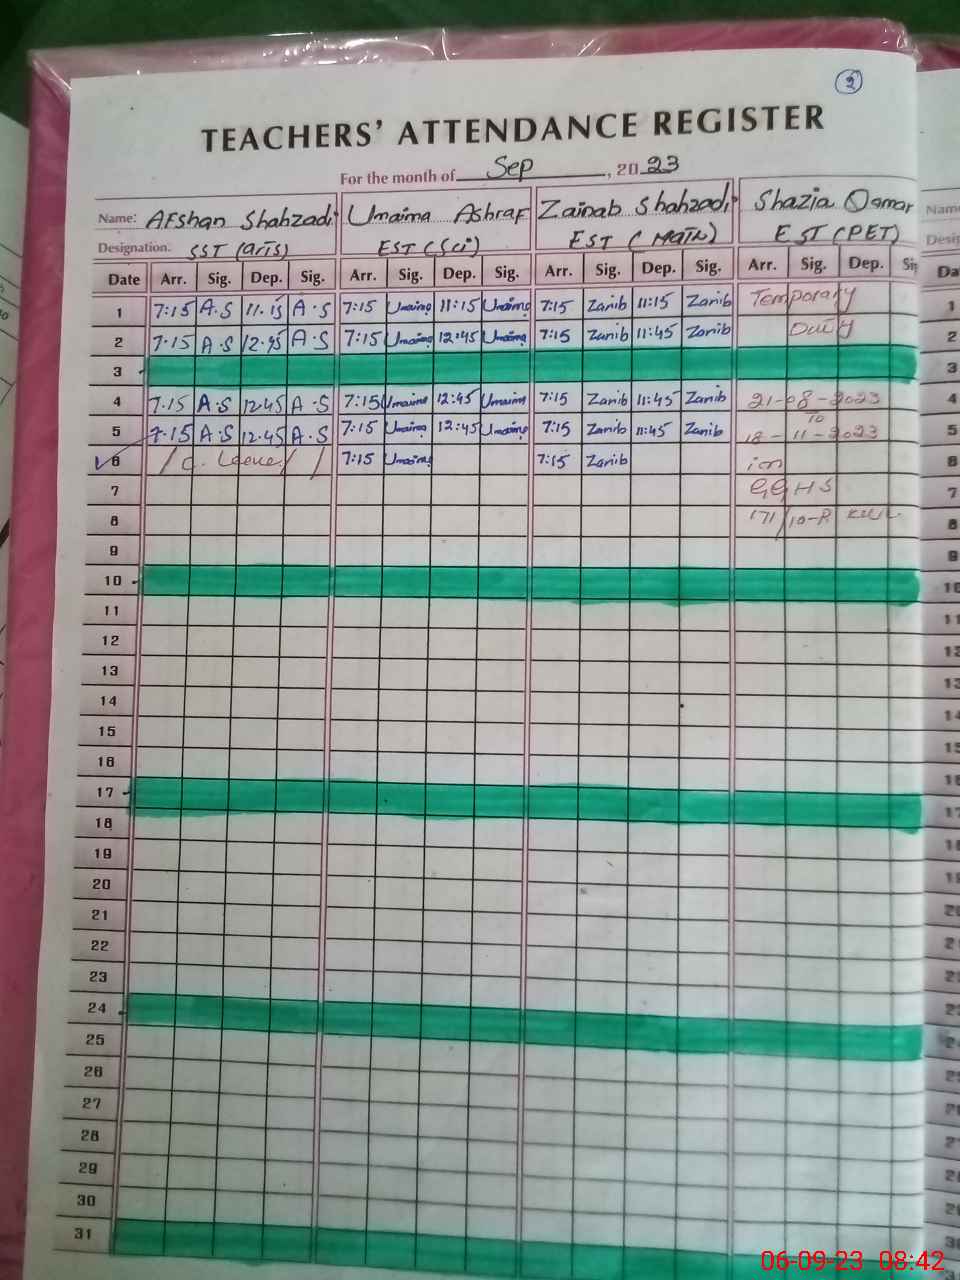 2
TEACHERS' ATTENDANCE REGISTER
For the month of Sep, 2023
Name: Afshan Shahzadi Umaima Ashraf Zainab Shahzadi Shazia Qamar Name
Designation: SST (arts) EST (Sci) EST (Math) EST (PET)
Date Arr. Sig. Dep. Sig. Arr. Sig. Dep. Sig. Arr. Sig. Dep. Sig. Arr. Sig. Dep.
1 7:15 A.S 11.15 A.S 7:15 Umaima 11:15 Umaima 7:15 Zanib 11:15 Zanib Temporary 1
2 7.15 A.S 12.45 A.S 7:15 Umaima 12:45 Umaima 7:15 Zanib 11:45 Zanib Duty 2
3 3
4 7.15 A.S 12.45 A.S 7:15 Umaima 12:45 Umaima 7:15 Zanib 11:45 Zanib 21-08-2023 4
To
5 7.15 A.S 12.45 A.S 7:15 Umaima 12:45 Umaima 7:15 Zanib 11:45 Zanib 18-11-2023 5
6 C. Leave 7:15 Umaima 7:15 Zanib in 6
7 GGHS 7
8 171/10-R 8
9 9
10 10
11 11
12 12
13 13
14 14
15 15
16 16
17 17
18 18
19 19
20
21
22
23
24
25
26
27
28
29
30
31
06-09-23 08:42